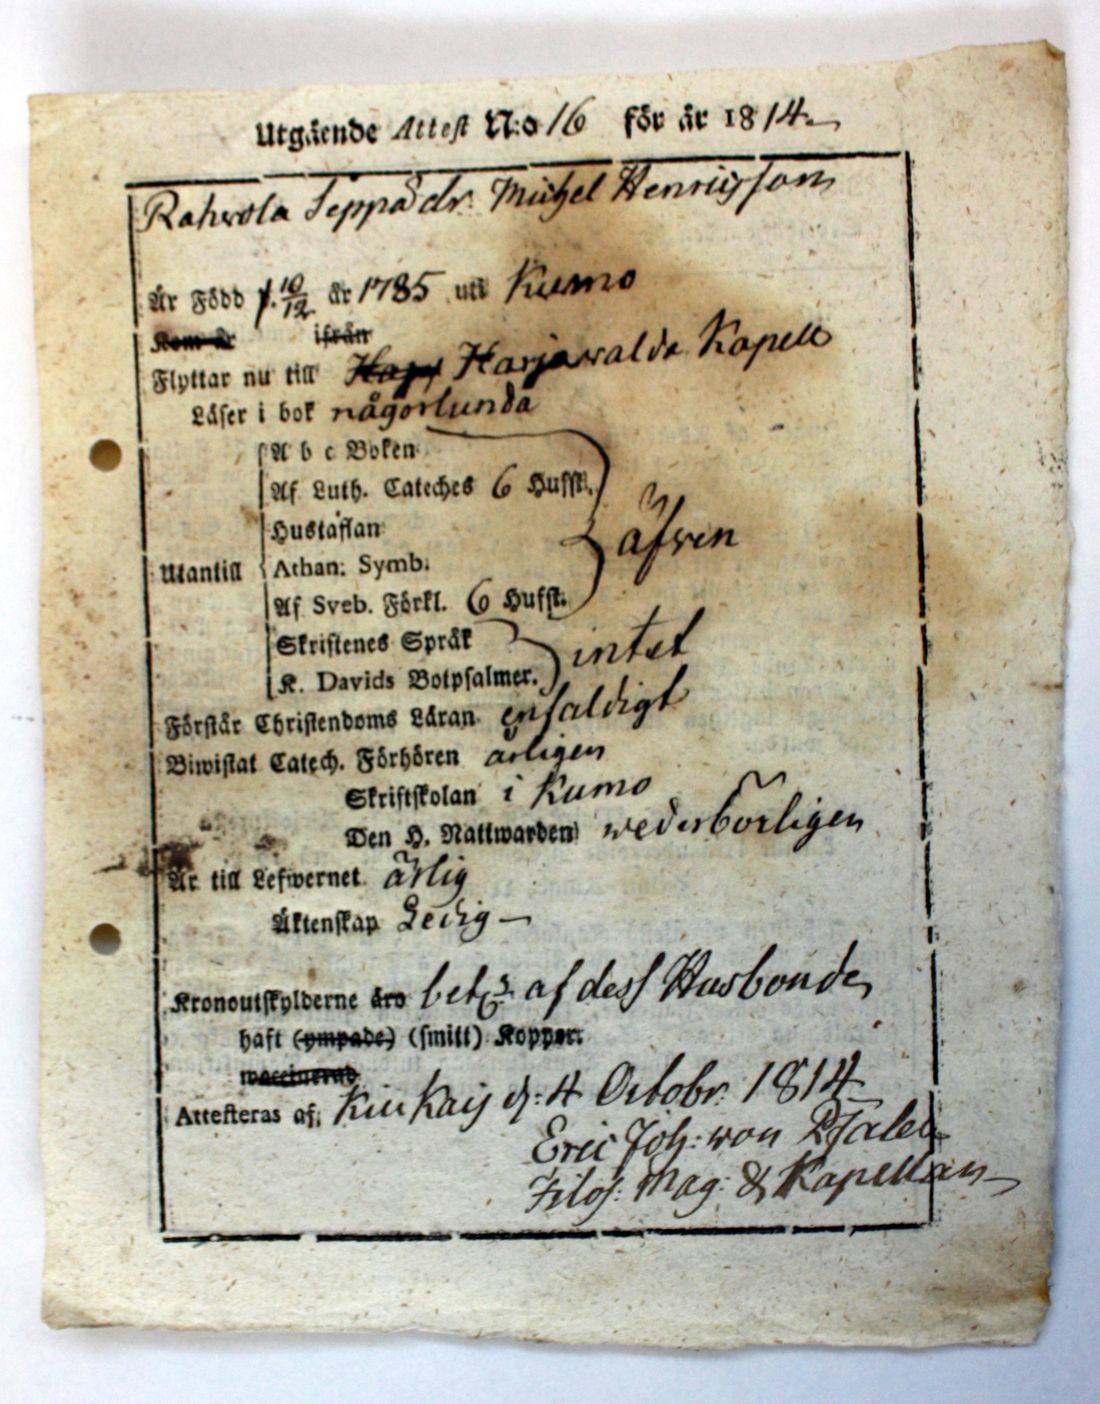 Utgående Attest N:o 16 för år 1814.
Rahvola Seppä dr. Michel Henricsson
Är Född d. 10/12 år 1785 uti Kumo
Kom år ifrån
Flyttar nu till Harjawalda Kapell
Läser i bok någorlunda
A b c Boken
Af Luth. Cateches 6 Hufst.
Hustaflan
äfwen
Utantill
Athan. Symb.
Af Sveb. Förkl. 6 Hufst.
Skriftenes Språk
intet
K. Davids Botpsalmer.
Förstår Christendoms Läran enfaldigt
Biwistat Catech. Förhören årligen
Skriftskolan i Kumo
Den H. Nattwarden wederbörligen
Är till Lefwernet ärlig
Äktenskap Ledig
Kronoutskylderne äro af dess Husbonde
haft (ympade) (smitt) Koppor.
waccinerad
Attesteras af, d: 4 Octobr. 1814
Eric Joh: von
Filos: Mag: & Kapellan